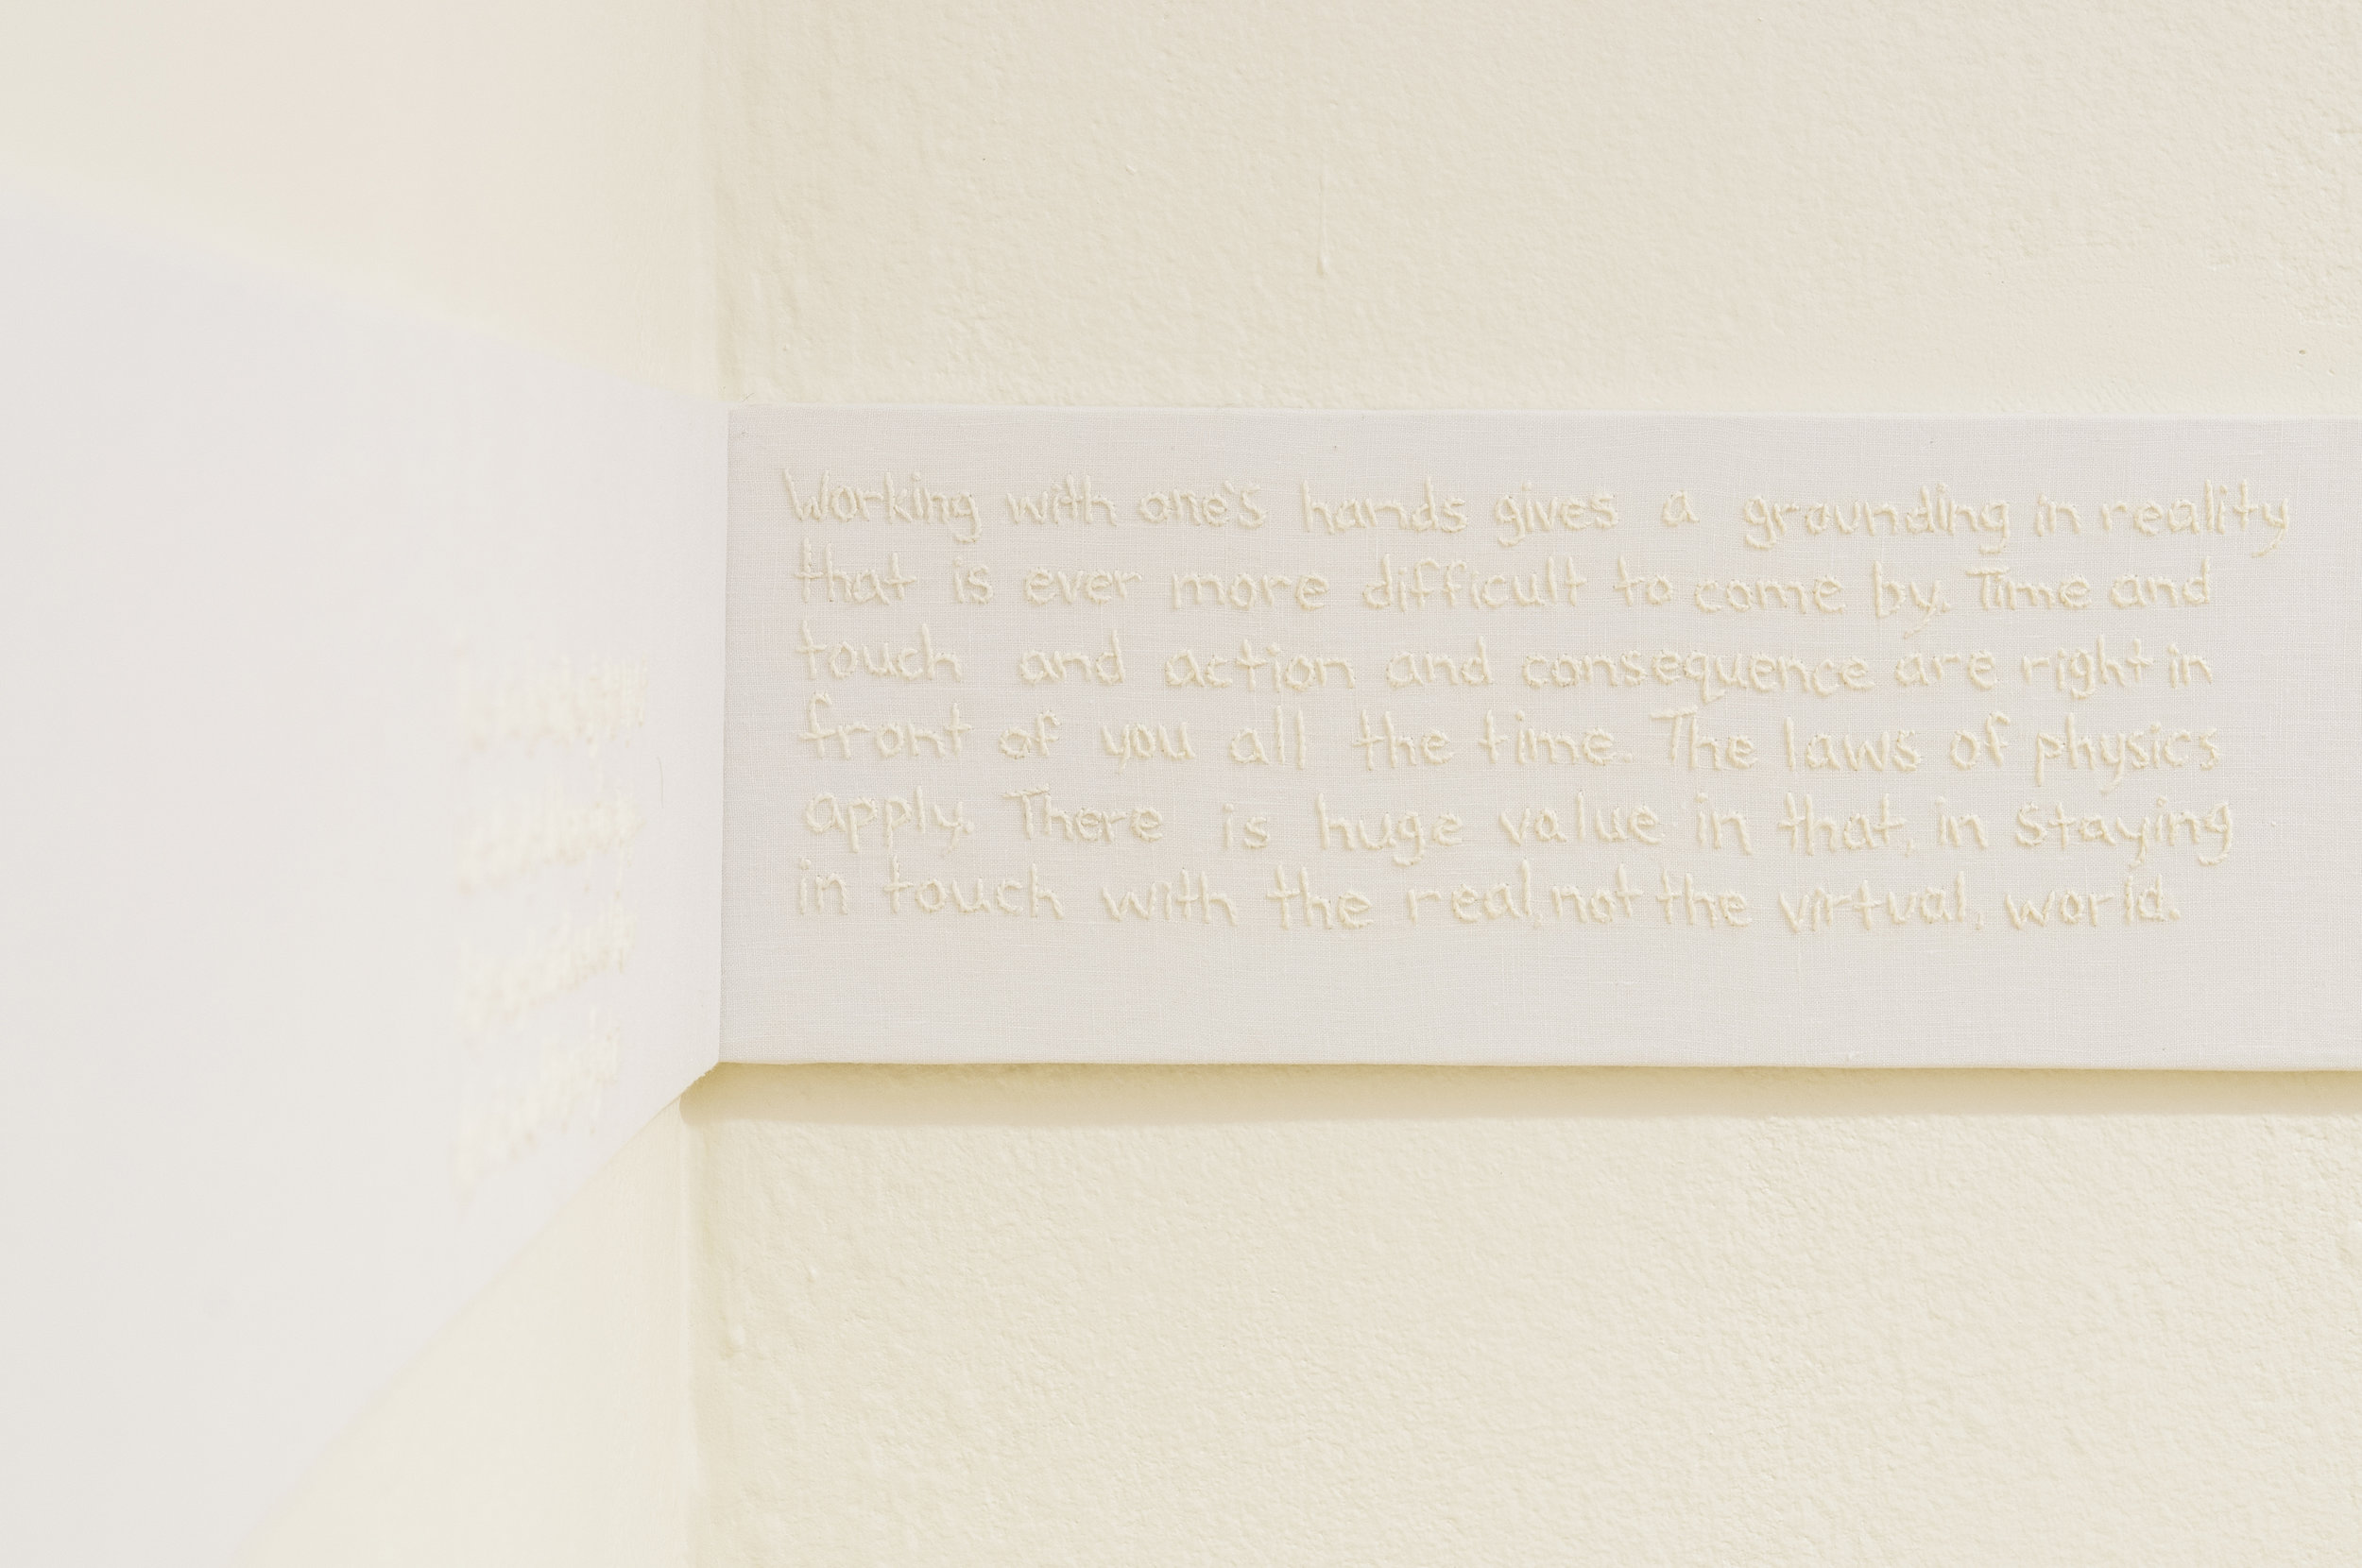 Working with one's hands gives a grounding in reality
that is ever more difficult to come by. Time and
touch and action and consequence are right in
front of you all the time. The laws of physics
apply. There is huge value in that, in staying
in touch with the real, not the virtual, world.